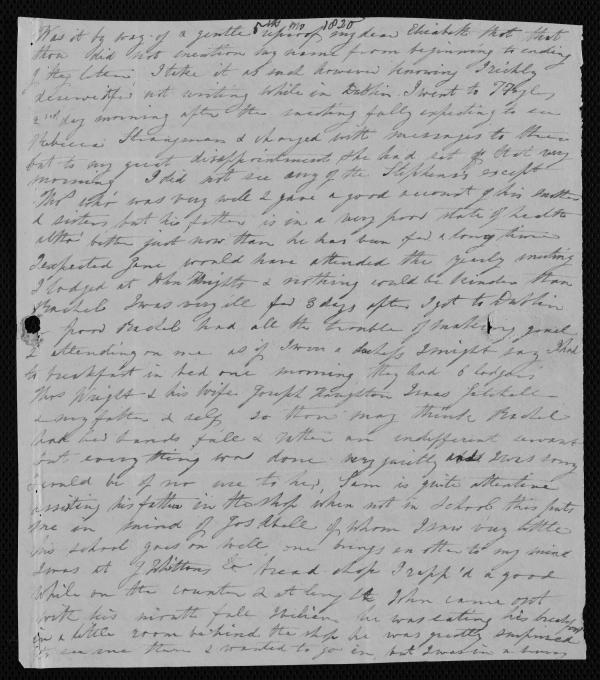 5th mo 1820
Was it by way of a gentle reproof my dear Elizabeth that that
thou did not mention my name from beginning to ending
of thy letter I take it as such however knowing I richly
deserved it not writing while in Dublin I went to
2nd day morning after the meeting fully expecting to see
Rebecca Strangman & charged with messages to thee
but to my great disappointment she had set off that very
morning I did not see any of the Stephens's except
Thos who was very well & gave a good account of his mother
& sisters but his father is in a very poor state of health
altho' better just now than he has been for a long time
I expected Jane would have attended the yearly meeting
I lodged at John Wrights & nothing could be kinder than
Rachel I was very ill for 3 days after I got to Dublin
& poor Rachel had all the trouble of making gruel
& attending on me as if I were a duchess I might say I had
to breakfast in bed one morning they had 6 lodgers
Thos Wright & his wife Joseph Haughton Isaac
& my father & self so thou may think Rachel
had her hands full & rather an indifferent servant
but everything was done very quietly I was sorry
I could be of no use to her, Sam is quite attentive
assisting his father in the shop when not in school this puts
me in mind of Jos of whom I saw very little
his school goes on well one brings another to my mind
I was at J Whittons bread shop I rapp'd a good
while on the counter & at length John came out
with his mouth full I believe he was eating his breakfast
in a little room behind the shop he was greatly surprised
to see me there & wanted to go in but I was in a hurry